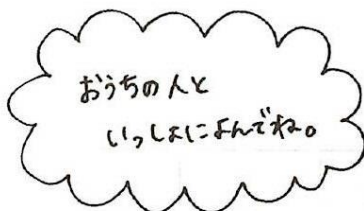 おうちの人と
いっしょによんでね。